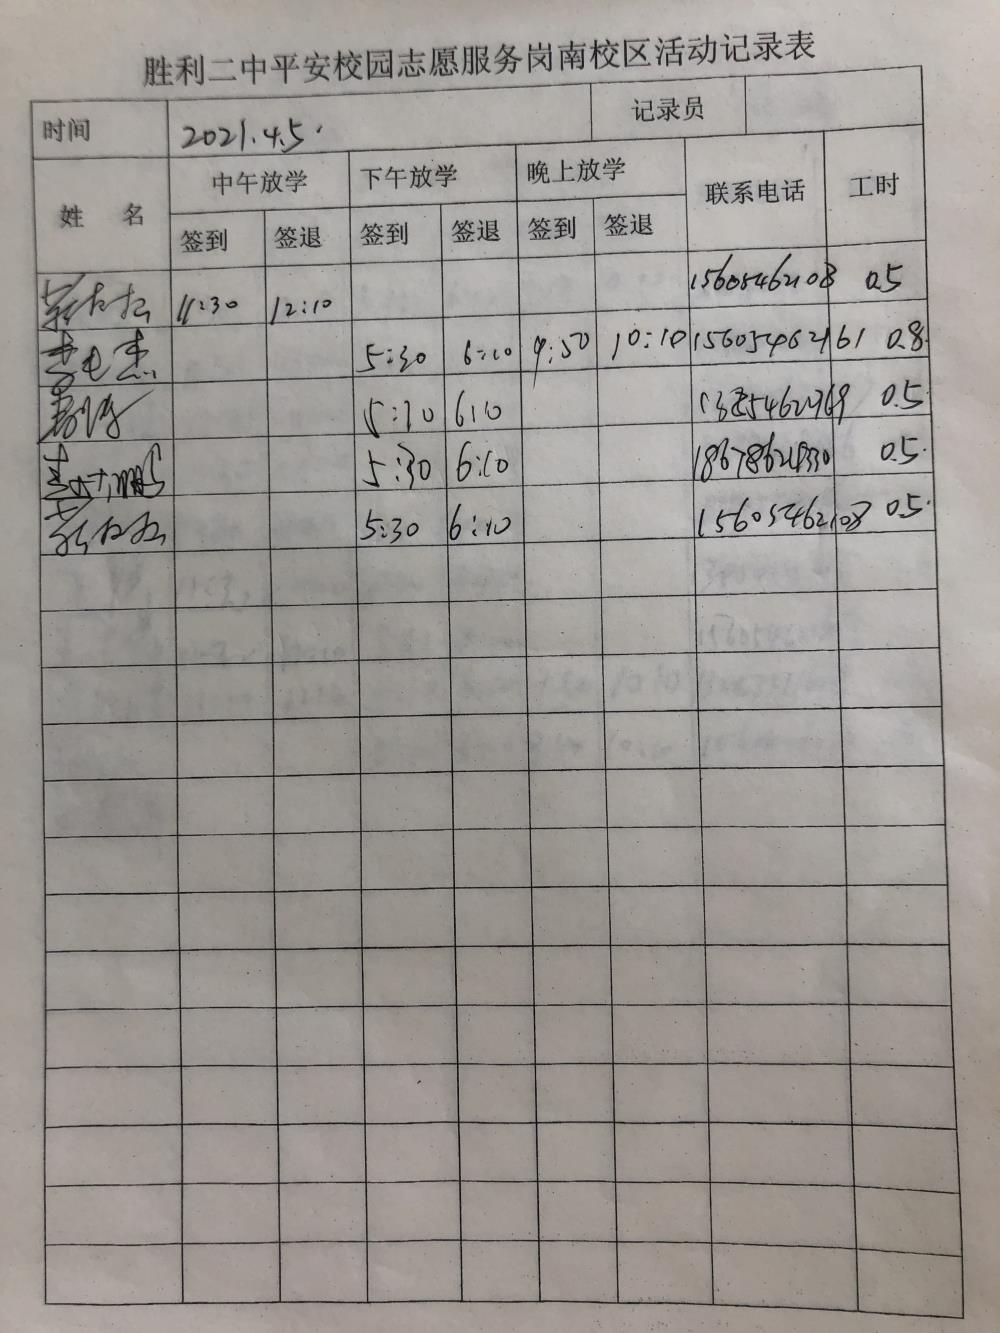 胜利二中平安校园志愿服务岗南校区活动记录表
时间 2021.4.5. 记录员
姓 名 中午放学 下午放学 晚上放学 联系电话 工时
签到 签退 签到 签退 签到 签退
11:30 12:10 15605462108 0.5
5:30 6:10 9:50 10:10 15605462161 0.8.
5:30 6:10 0.5.
5:30 6:10 0.5.
5:30 6:10 15605462108 0.5.